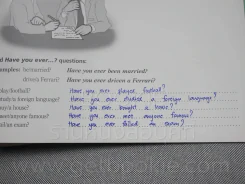 d Have you ever...? questions
mples: be/married? Have you ever been married?
drive/a Ferrari? Have you ever driven a Ferrari?
play/football? Have you ever played football?
study/a foreign language? Have you ever studied a foreign language?
buy/a house? Have you ever bought a house?
meet/anyone famous? Have you ever met anyone famous?
fail/an exam? Have you ever failed an exam?